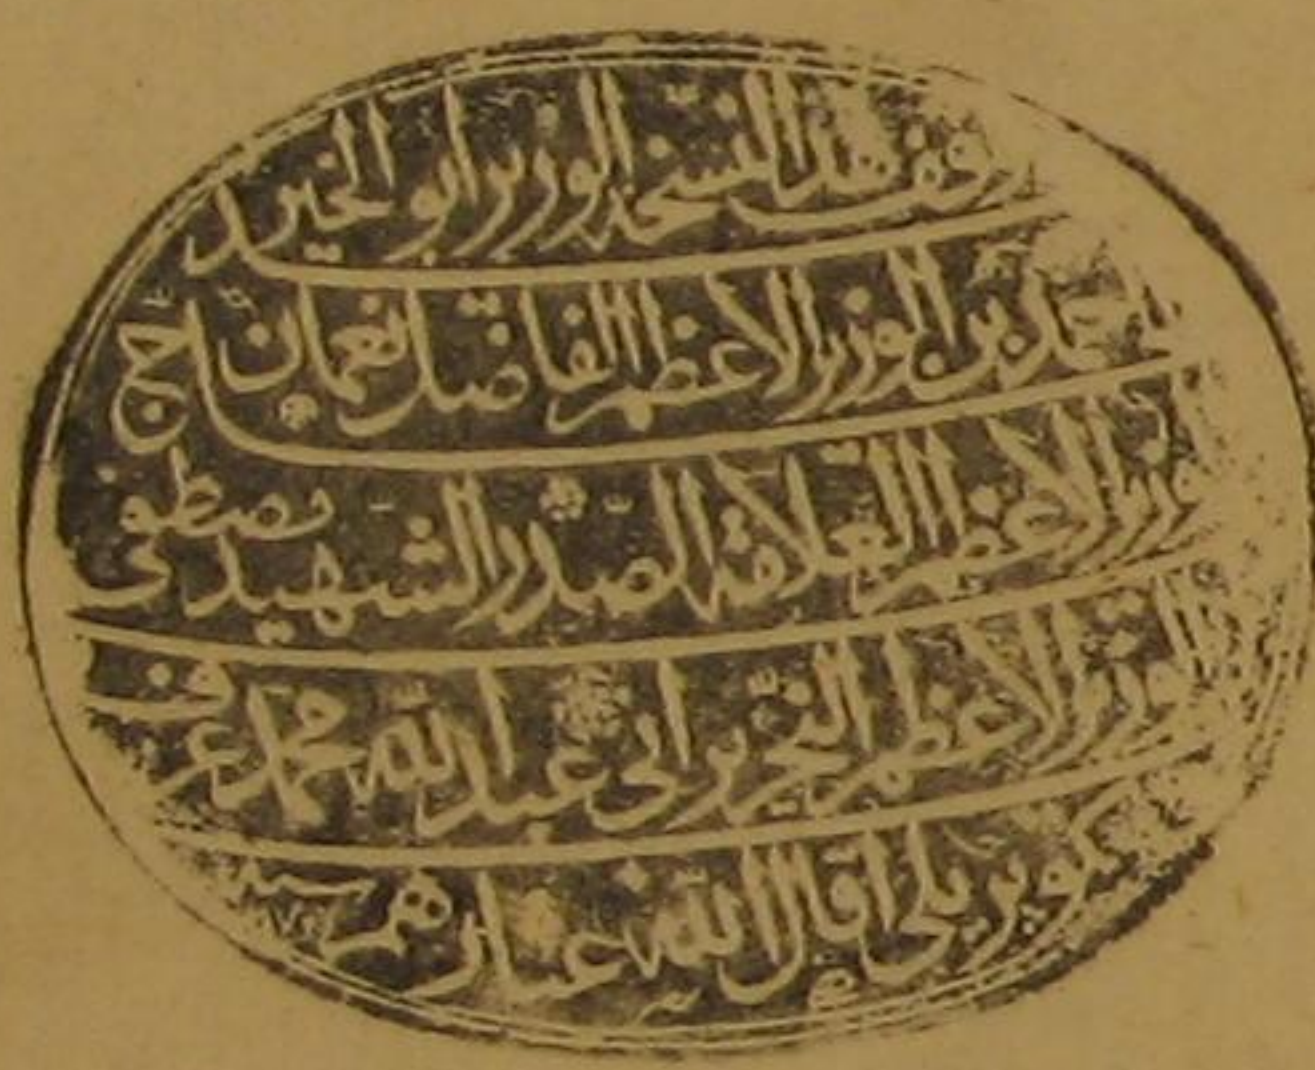 وقف هذه النسخة الوزير ابو الخير
احمد بن الوزير الاعظم الفاضل نعمان
الوزير الاعظم العلامة الصدر الشهيد مصطفى
الوزير الاعظم النحرير ابي عبد الله محمد عرف
بكوبريلي اقال الله عثارهم